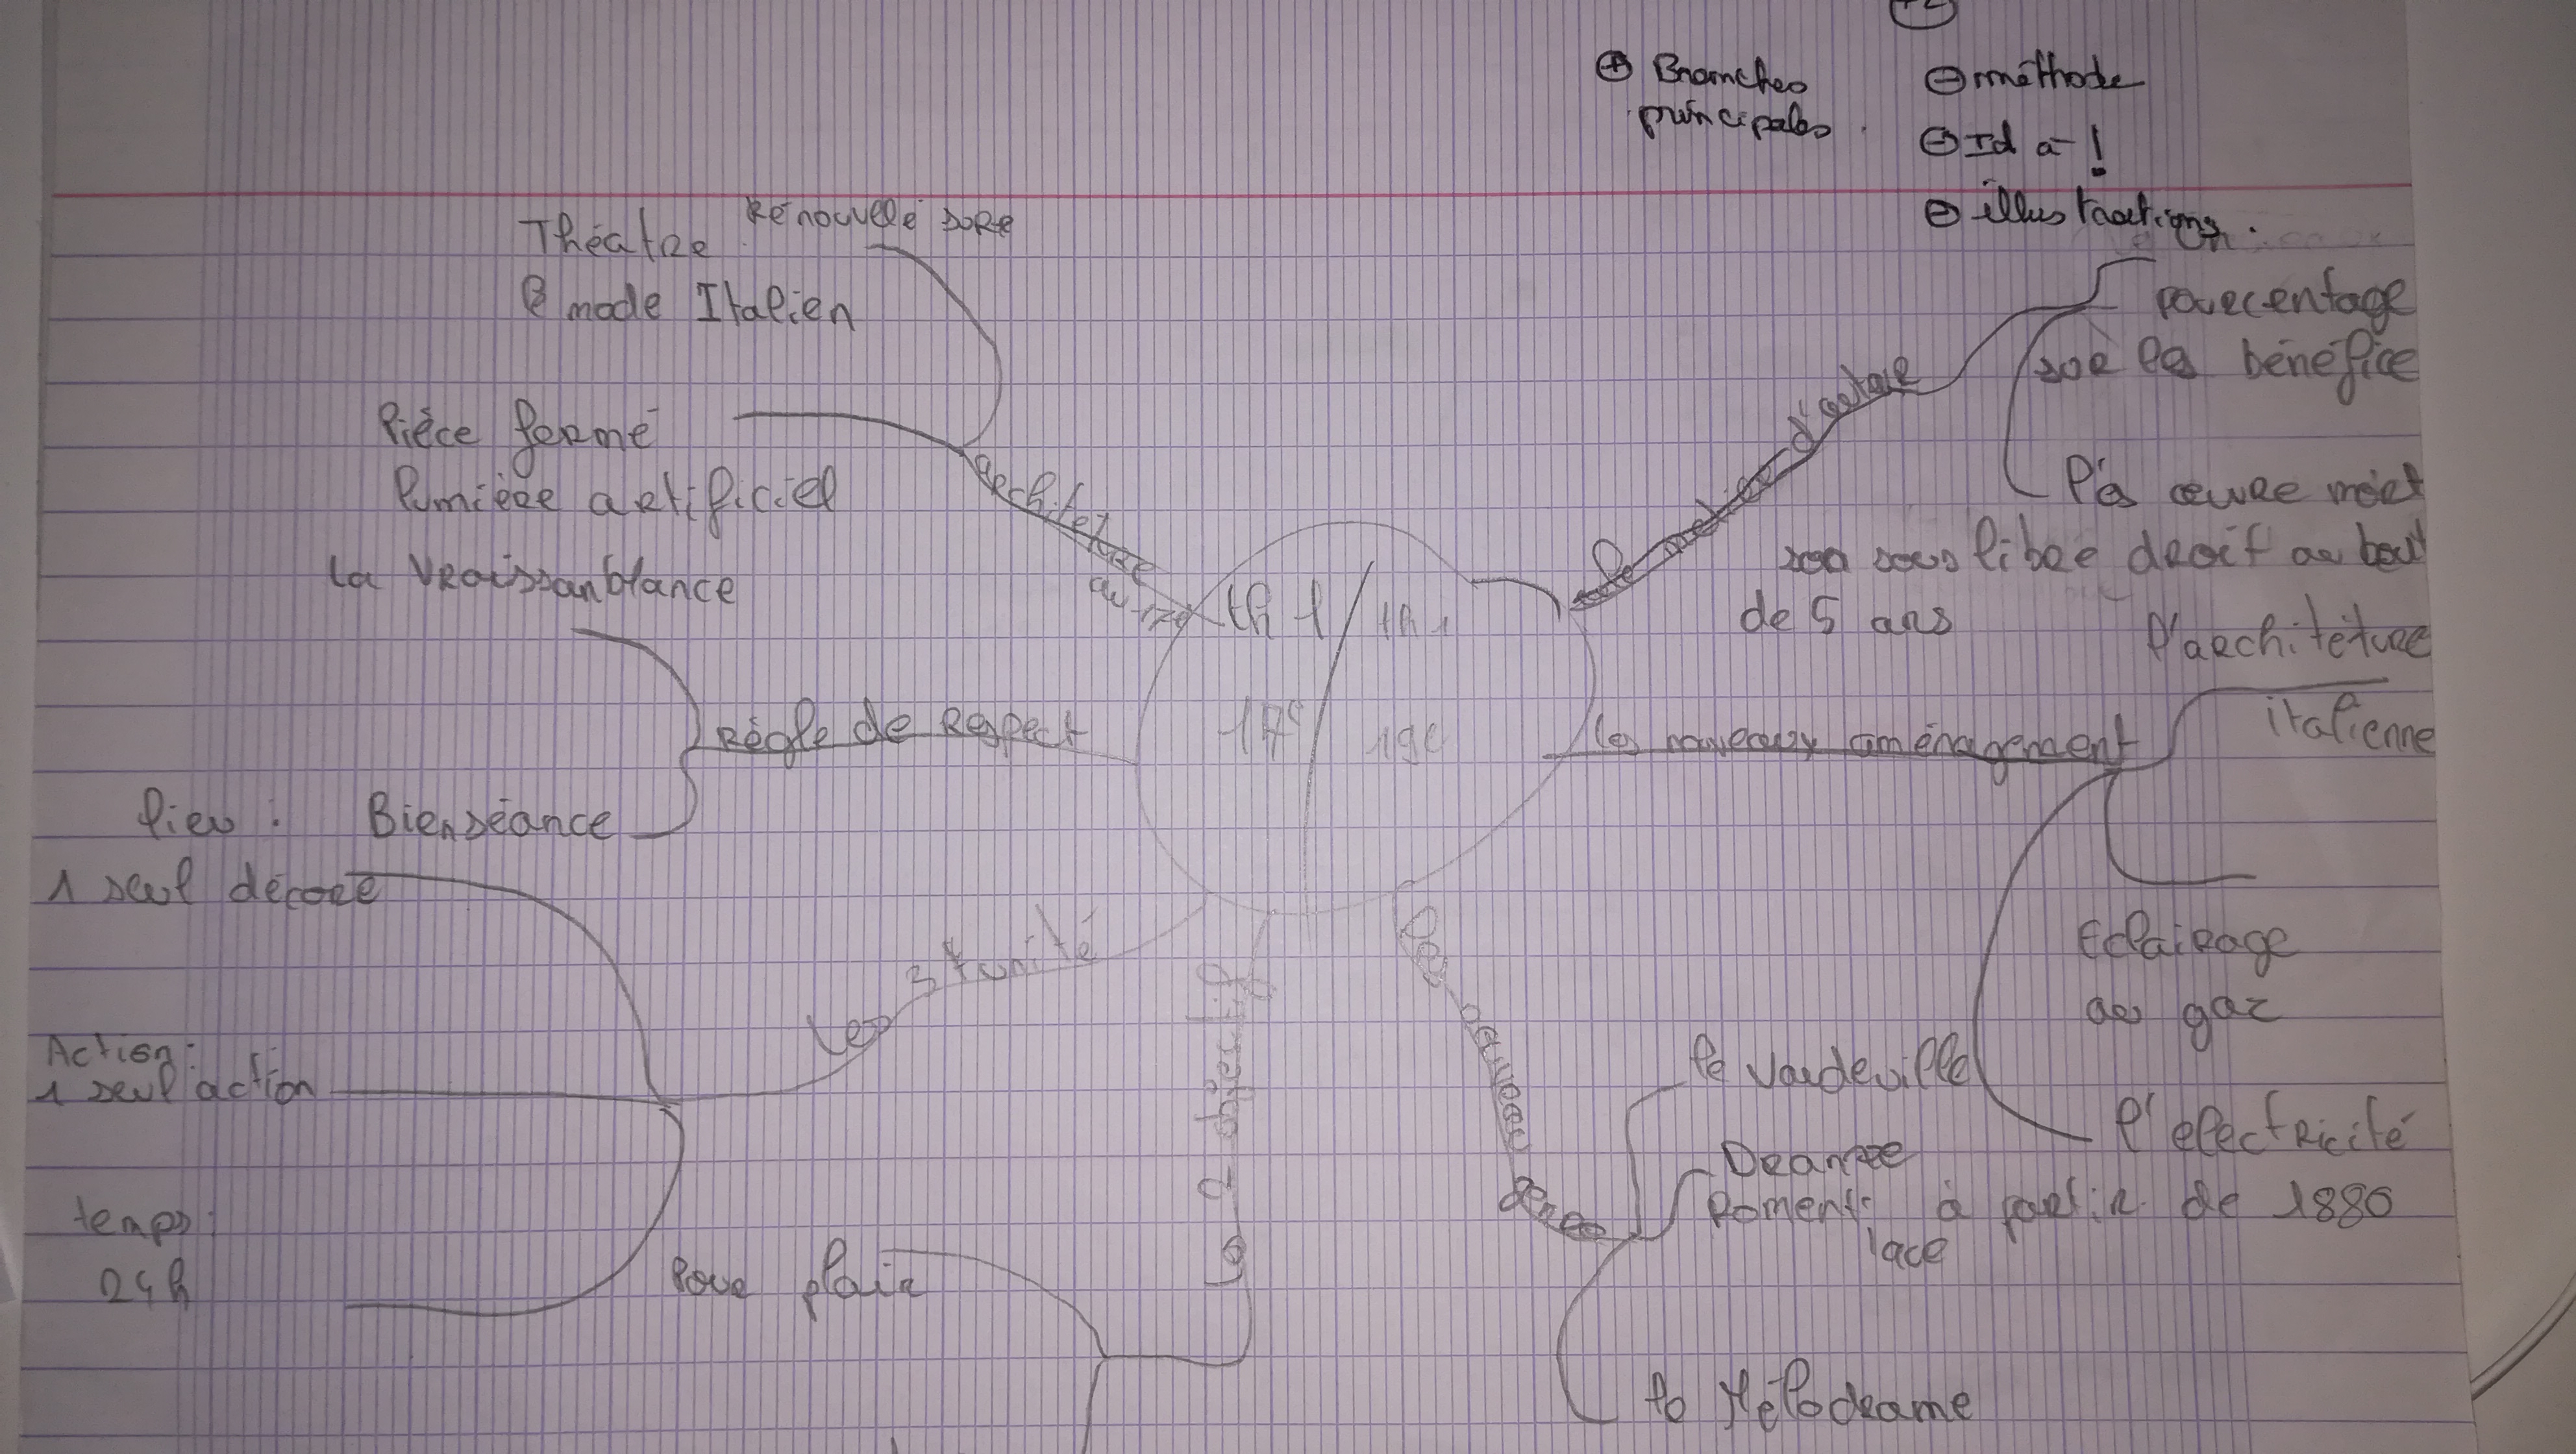 ⊕ Branches
principales
⊖ méthode
⊖ Id à !
⊖ illustrations.
Théatre Rénouvellé sore
mode Italien
Pièce fermé
lumière artificiel
architetre
au 17e
la vraissanblance
Règle de respect
Bienséance
lieu :
1 seul décore
Les 3 unité
Action :
1 seul action
temps :
24h
Les 2 objectif
Pour plair
th 1 / th 1
17e 19e
le métier d'auteur
pourcentage
sur les bénéfice
libre droit au bout
de 5 ans
les nouveaux aménagement
l'architéture
italienne
Eclairage
au gaz
l'electricité
à partir de 1880
Les nouveau genre
le Vaudeville
Drame
Roment
Mélodrame